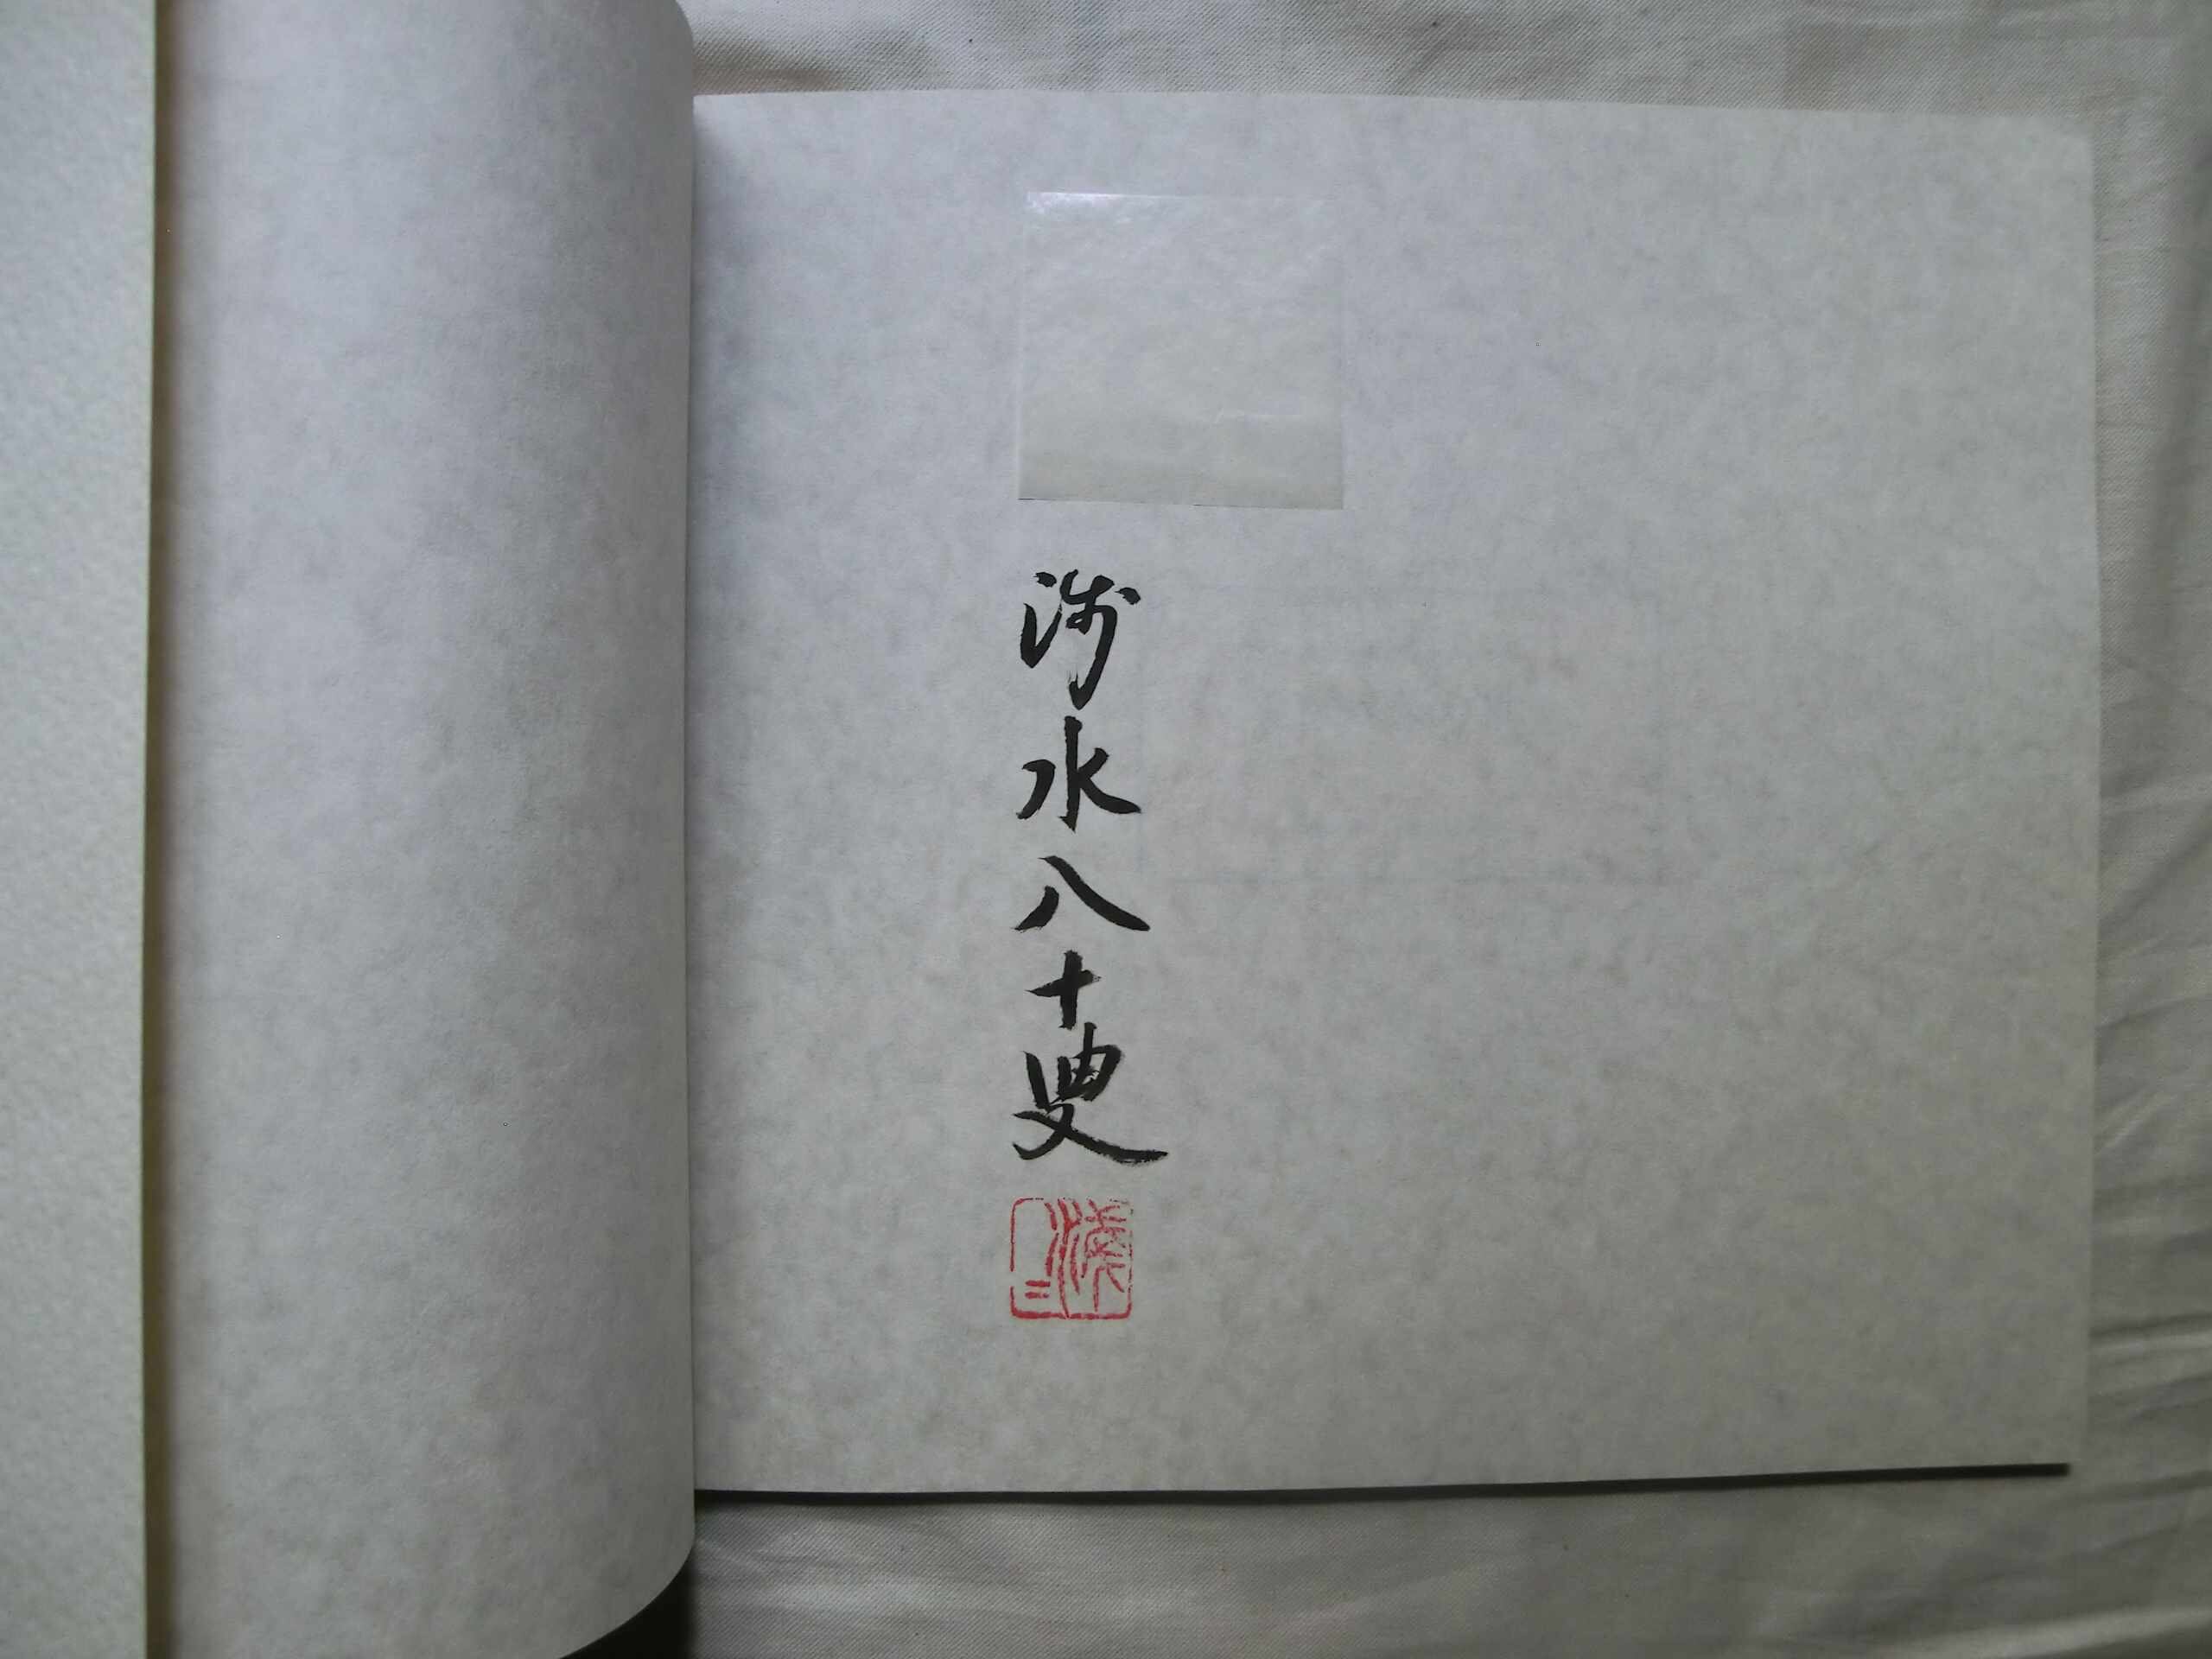 渉水八十叟